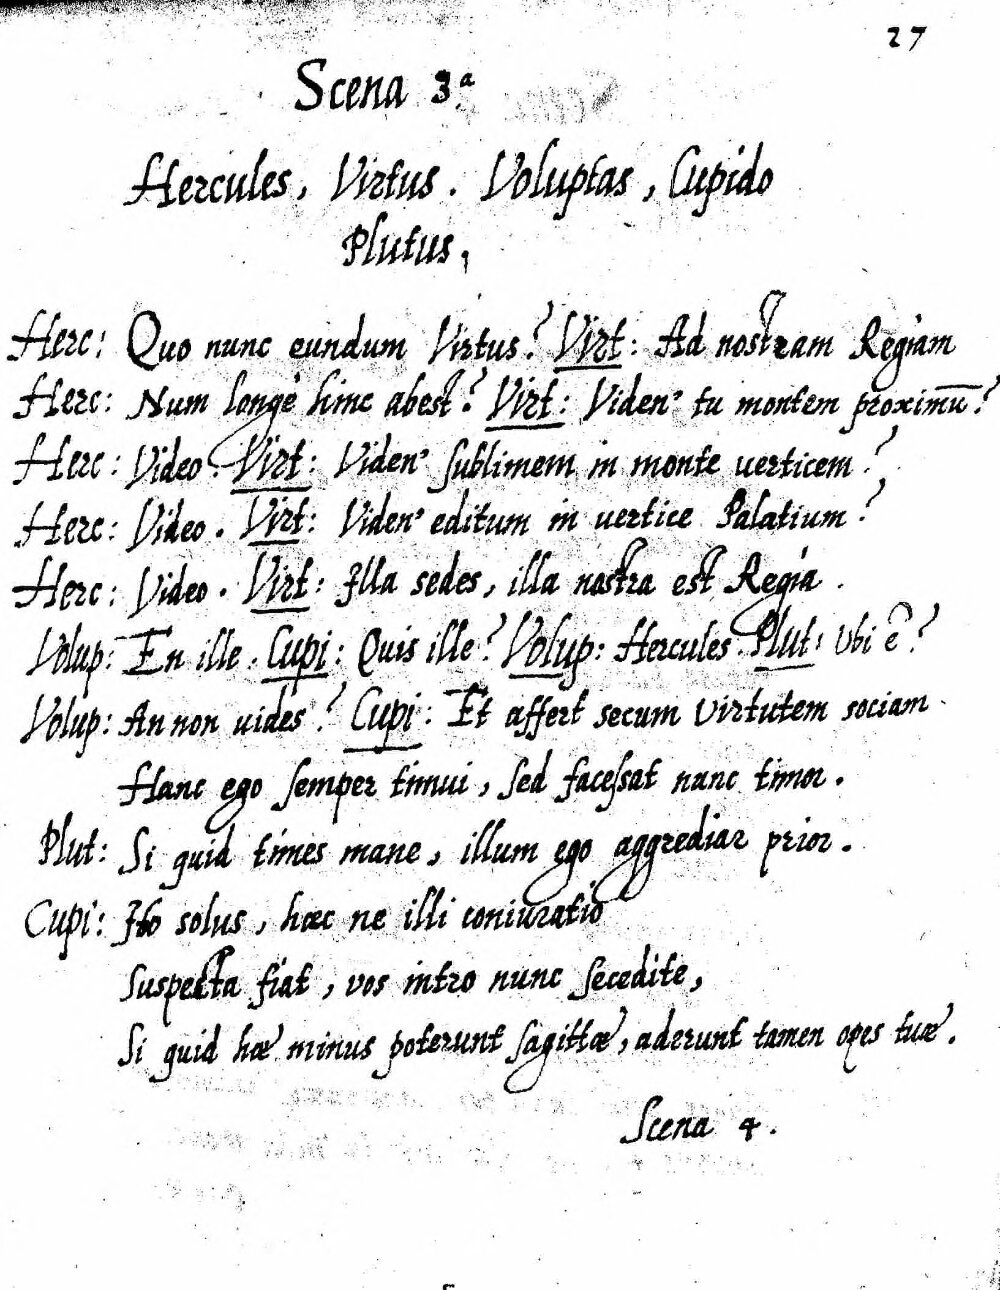 27
Scena 3.a
Hercules, Virtus. Voluptas, Cupido
Plutus,
Herc: Quo nunc eundum Virtus? Virt: Ad nostram Regiam
Herc: Num longè hinc abest? Virt: Viden' tu montem proximū?
Herc: Video. Virt: Viden' sublimem in monte uerticem?
Herc: Video. Virt: Viden' editum in uertice Palatium?
Herc: Video. Virt: Illa sedes, illa nostra est Regia.
Volup: En ille. Cupi: Quis ille? Volup: Hercules. Plut: Vbi ē?
Volup: An non uides? Cupi: Et affert secum virtutem sociam.
Hanc ego semper timui, sed facessat nunc timor.
Plut: Si quid times mane, illum ego aggrediar prior.
Cupi: Ibo solus, hæc ne illi coniuratio
suspecta fiat, vos intro nunc secedite,
Si quid hæ minus poterunt sagittæ, aderunt tamen opes tuæ.
Scena 4.